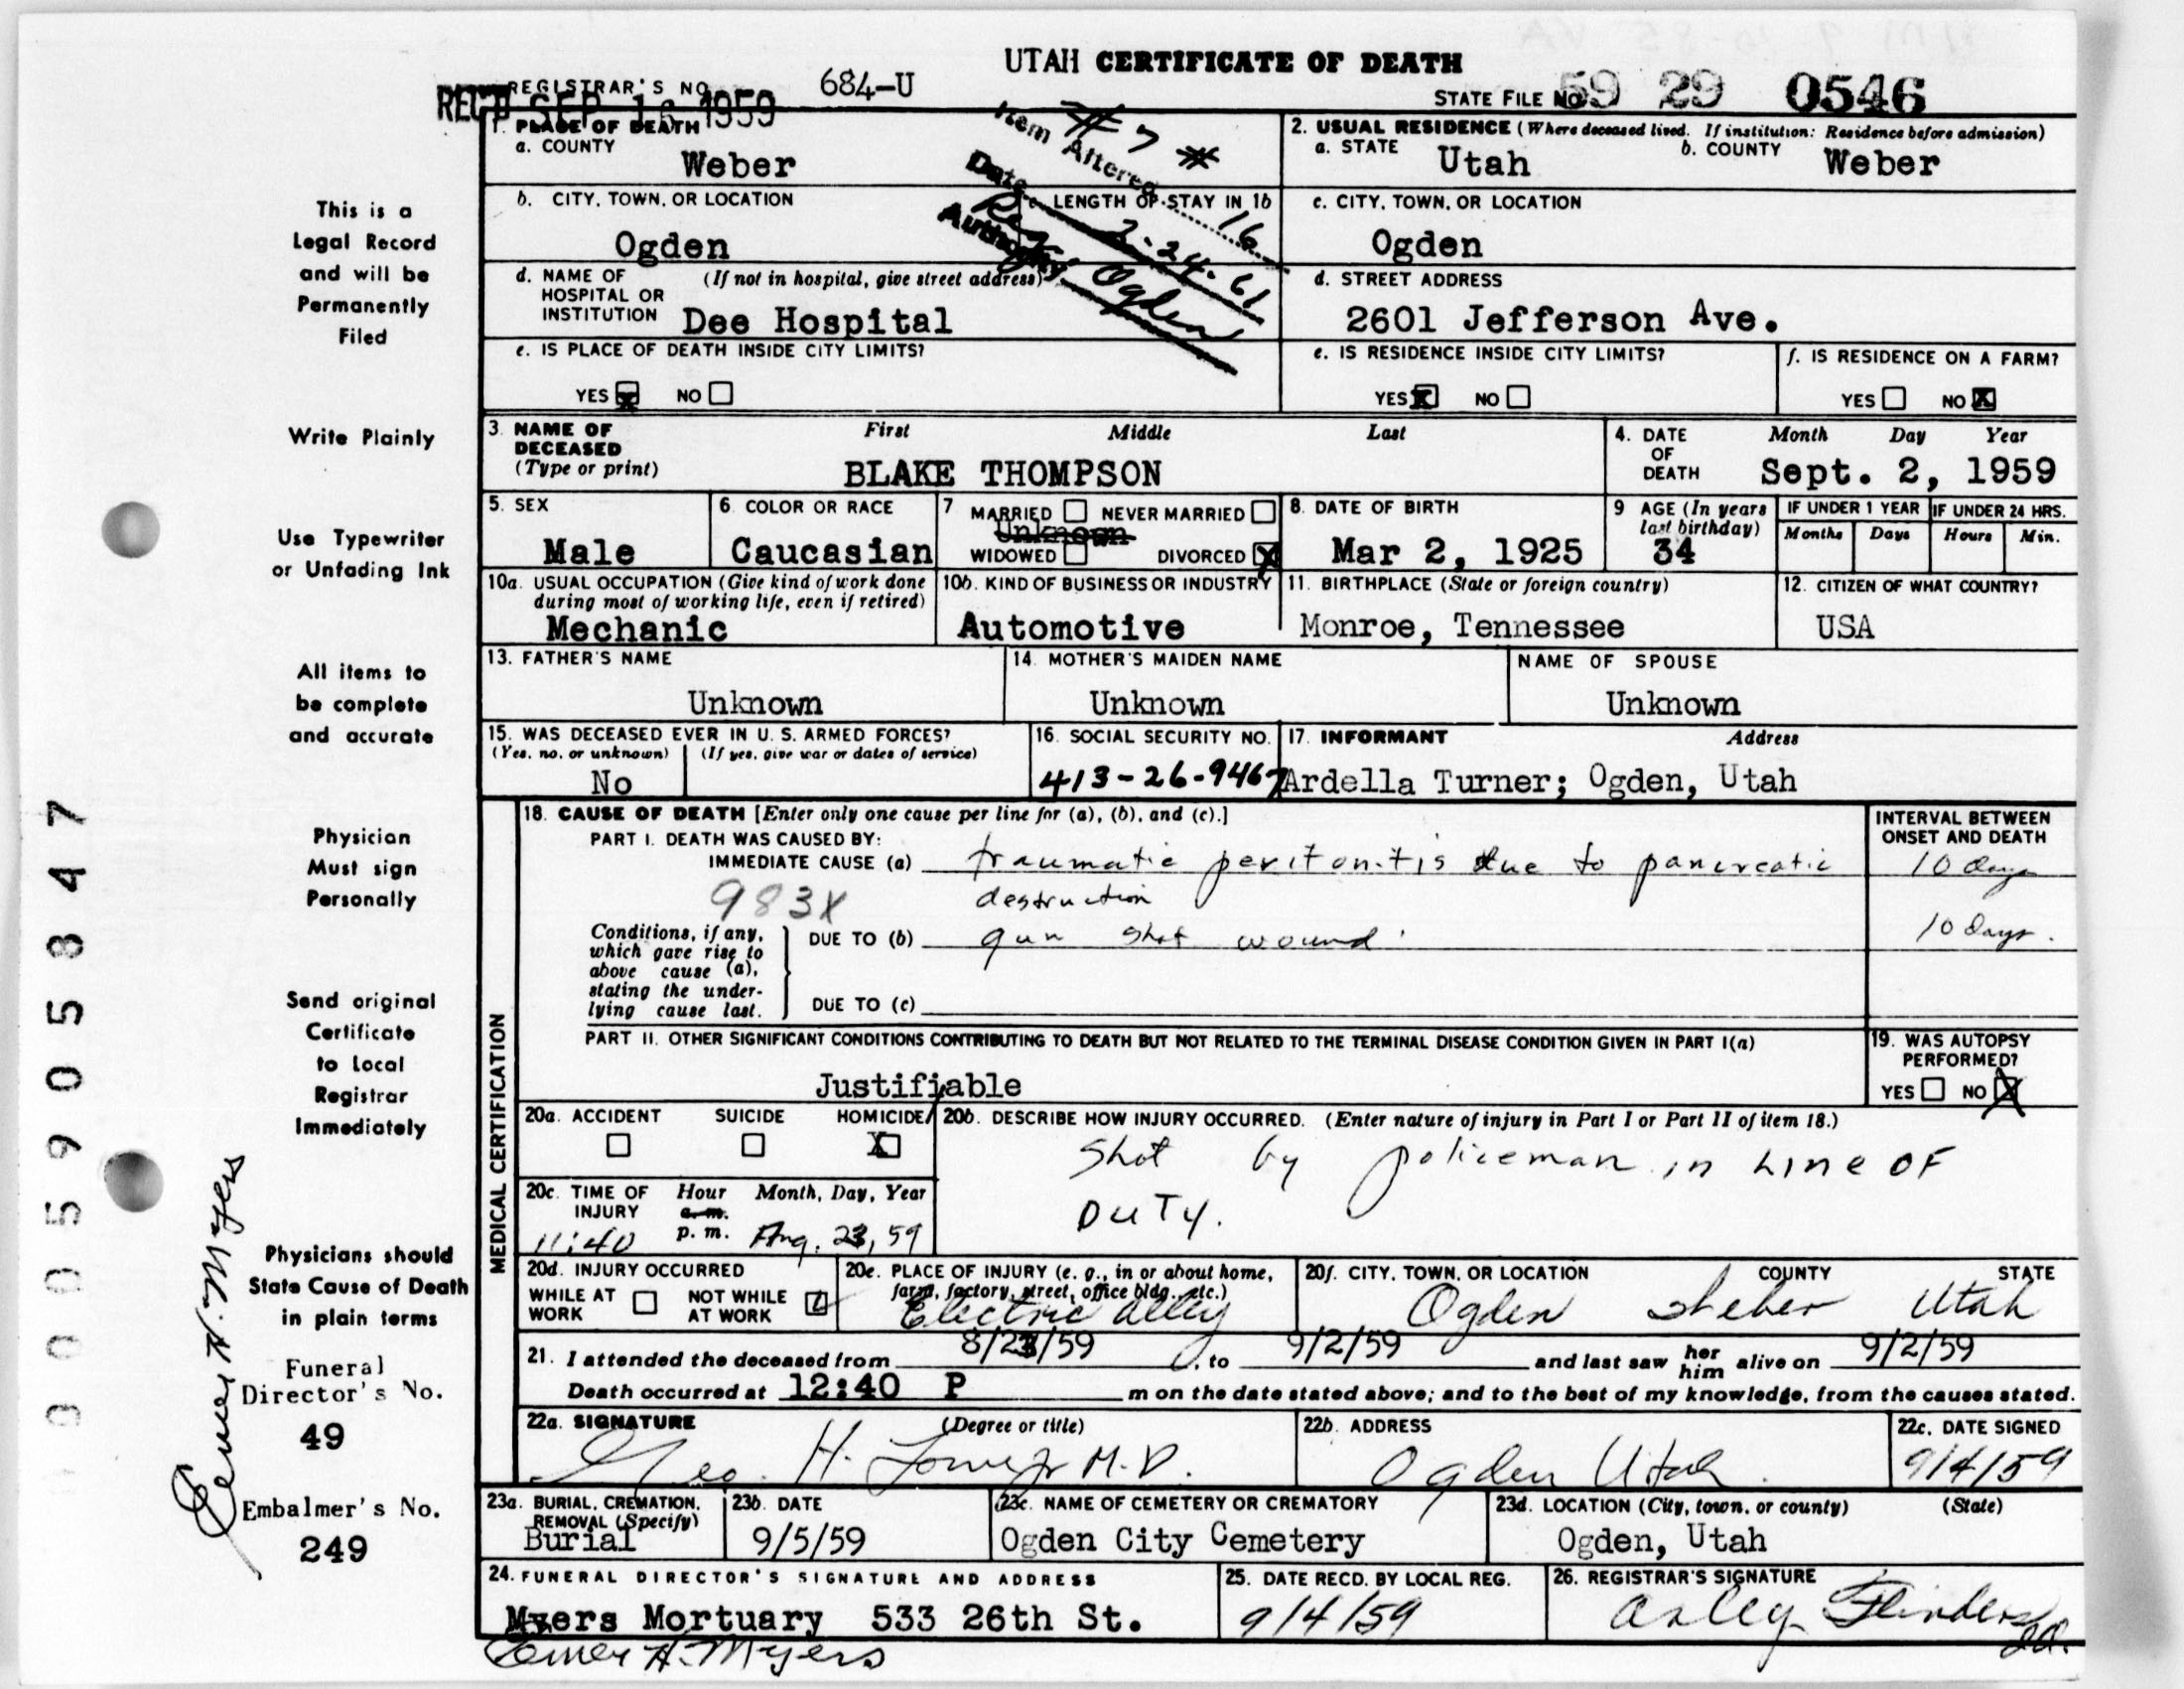 UTAH CERTIFICATE OF DEATH
REGISTRAR'S NO. 684-U
REC'D SEP 1 1959
STATE FILE NO. 59 29 0546
Item Altered #7 *
Date 2-24-61
Authority Reg. Ogden
1. PLACE OF DEATH
a. COUNTY
Weber
b. CITY, TOWN, OR LOCATION
Ogden
LENGTH OF STAY IN 1b
16
d. NAME OF HOSPITAL OR INSTITUTION (If not in hospital, give street address)
Dee Hospital
e. IS PLACE OF DEATH INSIDE CITY LIMITS?
YES X NO
2. USUAL RESIDENCE (Where deceased lived. If institution: Residence before admission)
a. STATE Utah b. COUNTY Weber
c. CITY, TOWN, OR LOCATION
Ogden
d. STREET ADDRESS
2601 Jefferson Ave.
e. IS RESIDENCE INSIDE CITY LIMITS?
YES X NO
f. IS RESIDENCE ON A FARM?
YES NO X
3. NAME OF DECEASED (Type or print) First Middle Last
BLAKE THOMPSON
4. DATE OF DEATH Month Day Year
Sept. 2, 1959
5. SEX
Male
6. COLOR OR RACE
Caucasian
7 MARRIED NEVER MARRIED
Unknown
WIDOWED DIVORCED X
8. DATE OF BIRTH
Mar 2, 1925
9 AGE (In years last birthday)
34
IF UNDER 1 YEAR
Months Days
IF UNDER 24 HRS.
Hours Min.
10a. USUAL OCCUPATION (Give kind of work done during most of working life, even if retired)
Mechanic
10b. KIND OF BUSINESS OR INDUSTRY
Automotive
11. BIRTHPLACE (State or foreign country)
Monroe, Tennessee
12. CITIZEN OF WHAT COUNTRY?
USA
13. FATHER'S NAME
Unknown
14. MOTHER'S MAIDEN NAME
Unknown
NAME OF SPOUSE
Unknown
15. WAS DECEASED EVER IN U. S. ARMED FORCES?
(Yes, no, or unknown) (If yes, give war or dates of service)
No
16. SOCIAL SECURITY NO.
413-26-9467
17. INFORMANT Address
Ardella Turner; Ogden, Utah
MEDICAL CERTIFICATION
18. CAUSE OF DEATH [Enter only one cause per line for (a), (b), and (c).]
INTERVAL BETWEEN ONSET AND DEATH
PART I. DEATH WAS CAUSED BY:
IMMEDIATE CAUSE (a) traumatic peritonitis due to pancreatic 10 days
983X destruction
Conditions, if any, which gave rise to above cause (a), stating the underlying cause last.
DUE TO (b) gun shot wound 10 days.
DUE TO (c)
PART II. OTHER SIGNIFICANT CONDITIONS CONTRIBUTING TO DEATH BUT NOT RELATED TO THE TERMINAL DISEASE CONDITION GIVEN IN PART I(a)
19. WAS AUTOPSY PERFORMED?
YES NO X
Justifiable
20a. ACCIDENT SUICIDE HOMICIDE
X
20b. DESCRIBE HOW INJURY OCCURRED. (Enter nature of injury in Part I or Part II of item 18.)
Shot by policeman in LINE OF
DUTY.
20c. TIME OF INJURY Hour Month, Day, Year
a. m.
11:40 p. m. Aug. 23, 59
20d. INJURY OCCURRED
WHILE AT WORK NOT WHILE AT WORK
20e. PLACE OF INJURY (e. g., in or about home, farm, factory, street, office bldg., etc.)
Electric Alley
20f. CITY, TOWN, OR LOCATION COUNTY STATE
Ogden Weber Utah
21. I attended the deceased from 8/23/59, to 9/2/59 and last saw her him alive on 9/2/59
Death occurred at 12:40 P m on the date stated above; and to the best of my knowledge, from the causes stated.
22a. SIGNATURE (Degree or title)
Geo. H. Lowe Jr M.D.
22b. ADDRESS
Ogden Utah.
22c. DATE SIGNED
9/4/59
23a. BURIAL, CREMATION, REMOVAL (Specify)
Burial
23b. DATE
9/5/59
23c. NAME OF CEMETERY OR CREMATORY
Ogden City Cemetery
23d. LOCATION (City, town, or county) (State)
Ogden, Utah
24. FUNERAL DIRECTOR'S SIGNATURE AND ADDRESS
Myers Mortuary 533 26th St.
Elmer H. Myers
25. DATE RECD. BY LOCAL REG.
9/4/59
26. REGISTRAR'S SIGNATURE
Arley Flinders
This is a
Legal Record
and will be
Permanently
Filed
Write Plainly
Use Typewriter
or Unfading Ink
All items to
be complete
and accurate
Physician
Must sign
Personally
Send original
Certificate
to Local
Registrar
Immediately
Physicians should
State Cause of Death
in plain terms
Funeral
Director's No.
49
Embalmer's No.
249
Elmer H. Myers
005905847